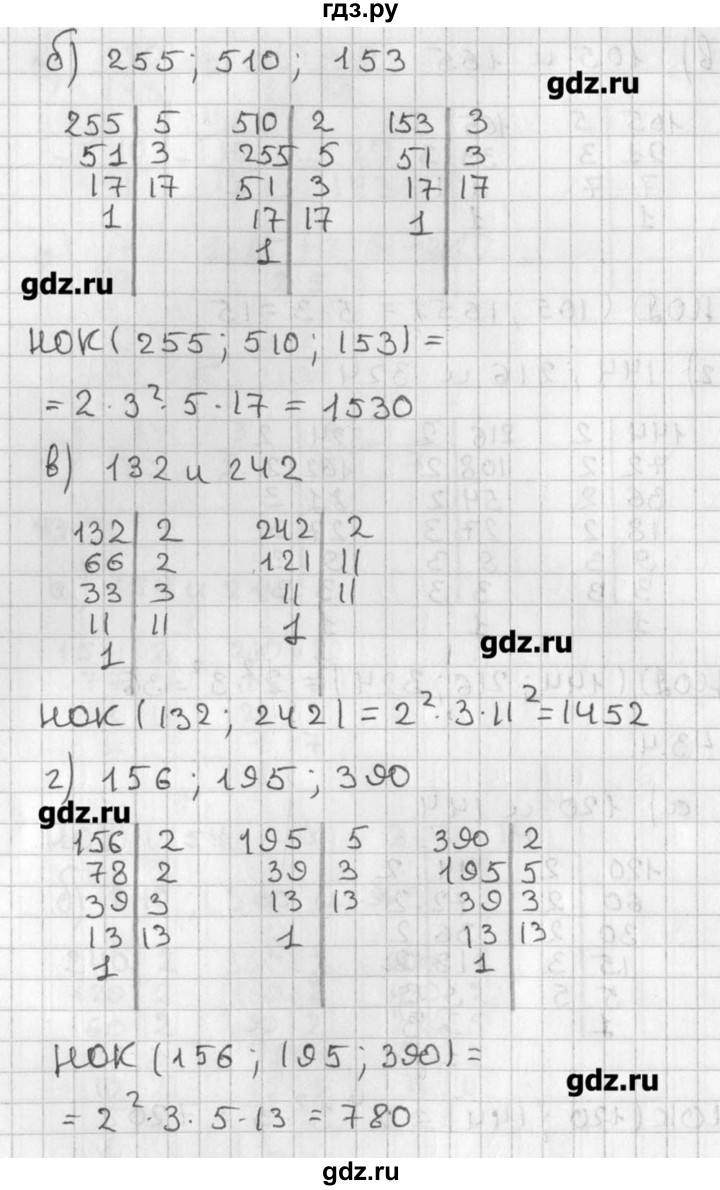 гдз.ру
б) 255; 510; 153
gdz.ru
255 | 5 510 | 2 153 | 3
51 | 3 255 | 5 51 | 3
17 | 17 51 | 3 17 | 17
1 17 | 17 1
1
gdz.ru
НОК(255; 510; 153) =
= 2 · 3² · 5 · 17 = 1530
в) 132 и 242
132 | 2 242 | 2
66 | 2 121 | 11
33 | 3 11 | 11
11 | 11 1
1
gdz.ru
НОК (132; 242) = 2² · 3 · 11² = 1452
г) 156; 195; 390
gdz.ru
156 | 2 195 | 5 390 | 2
78 | 2 39 | 3 195 | 5
39 | 3 13 | 13 39 | 3
13 | 13 1 13 | 13
1 1
НОК (156; 195; 390) =
gdz.ru
= 2² · 3 · 5 · 13 = 780
gdz.ru